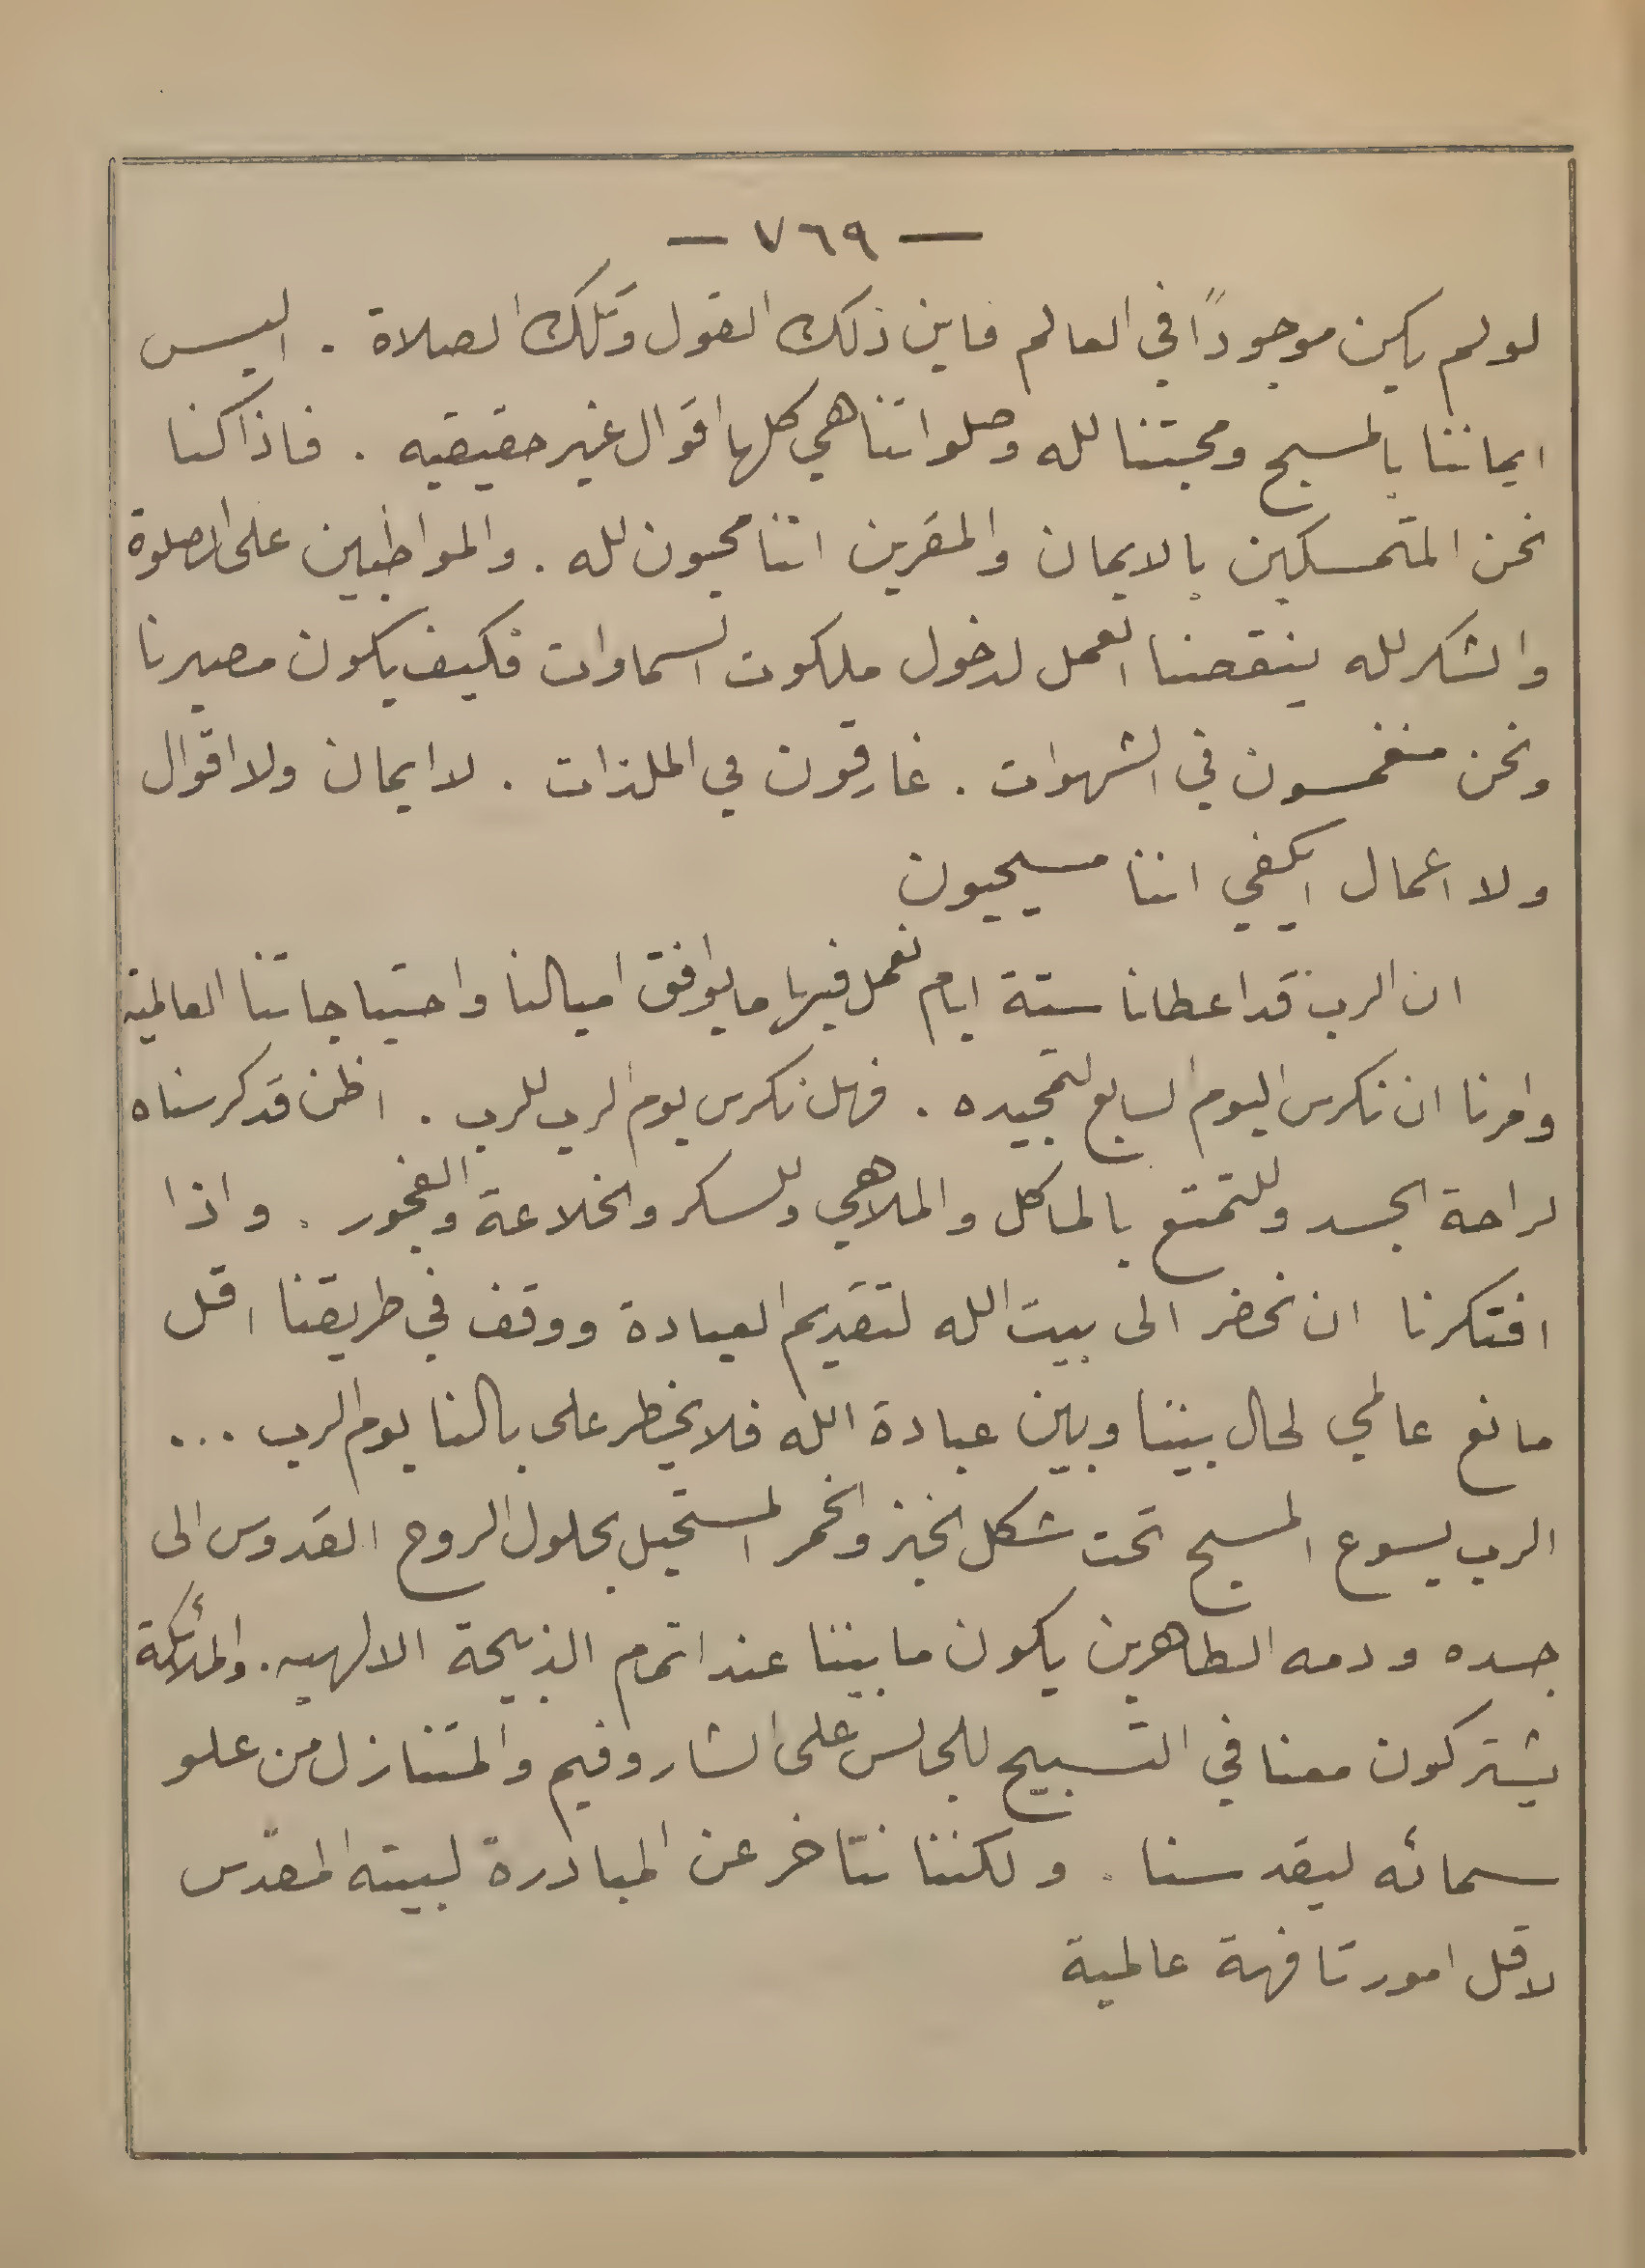 — ٧٦٩ —
لو لم يكن موجودًا في العالم فاين ذلك القول وتلك الصلاة . اليس
ايماننا بالمسيح ومحبتنا لله وصلواتنا هي كلها اقوال غير حقيقيه . فاذا كنا
نحن المتمسكين بالايمان والمقرين اننا محبون لله . والمواظبين على الصلوة
والشكر لله ينقصنا العمل لدخول ملكوت السماوات فكيف يكون مصيرنا
ونحن منغمسون في الشهوات . غارقون في الملذات . لا ايمان ولا اقوال
ولا اعمال ايكفي اننا مسيحيون
ان الرب قد اعطانا ستة ايام نعمل فيها ما يوافق اميالنا واحتياجاتنا العالمية
وامرنا ان نكرس اليوم السابع لتمجيده . فهل نكرس يوم الرب للرب . اظن قد كرسناه
لراحة الجسد وللتمتع بالماكل والملاهي وللسكر والخلاعة والفجور . واذا
افتكرنا ان نحضر الى بيت الله لتقديم العبادة ووقف في طريقنا اقل
مانع عالمي لحال بيننا وبين عبادة الله فلا يخطر على بالنا يوم الرب ...
الرب يسوع المسيح تحت شكل الخبز والخمر المستحيل بحلول الروح القدوس الى
جسده ودمه الطاهرين يكون ما بيننا عند اتمام الذبيحة الالهيه . والملائكة
يشتركون معنا في التسبيح للجالس على الشاروفيم والمتنازل من علو
سمائه ليقدسنا . ولكننا نتاخر عن المبادرة لبيته المقدس
لاقل امور تافهة عالمية